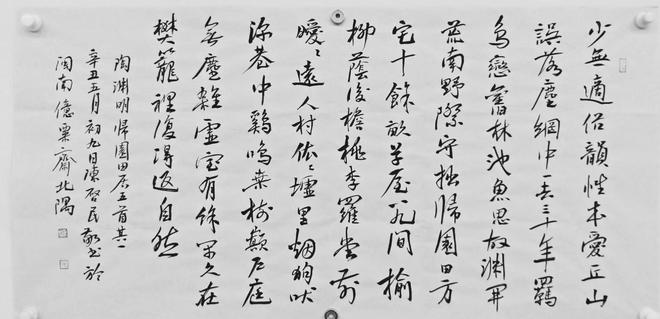 少無適俗韻性本愛丘山
誤落塵網中一去三十年羈
鳥戀舊林池魚思故淵開
荒南野際守拙歸園田方
宅十餘畝草屋八九間榆
柳蔭後檐桃李羅堂前
曖〻遠人村依〻墟里烟狗吠
深巷中鷄鳴桑樹顛戶庭
無塵雜虛室有餘閒久在
樊籠裡復得返自然
陶淵明歸園田居五首其一
辛丑五月初九日陳啓民敬書於
閩南億粟齋北隅